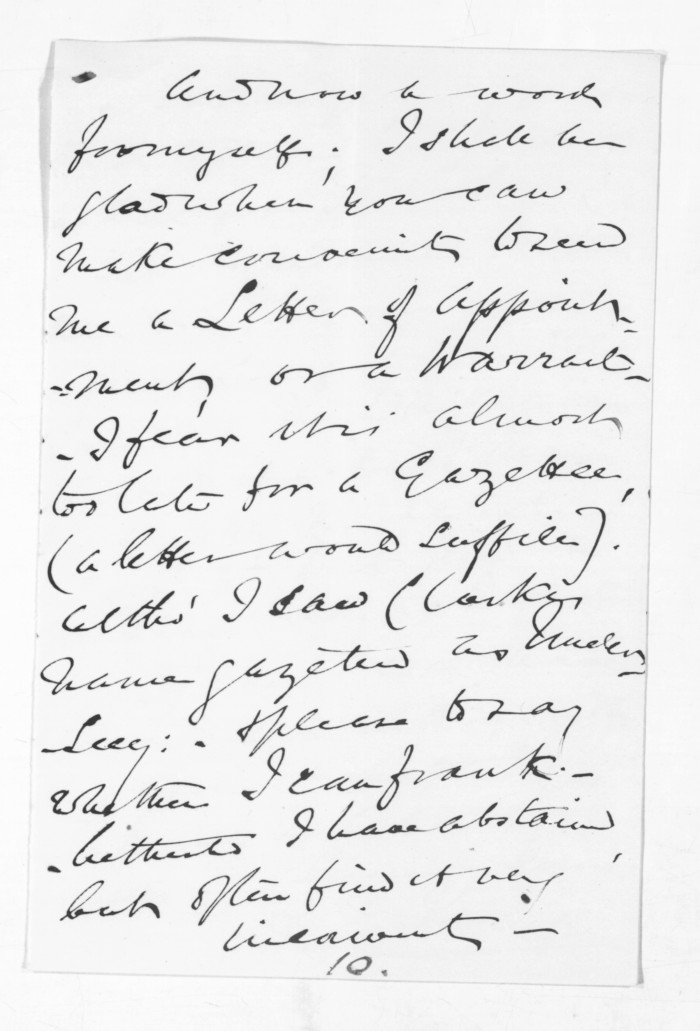 And now a word
for myself; I shall be
glad when you can
make convenient to send
me a Letter of Appoint-
-ment, or a Warrant-
- I fear it is almost
too late for a Gazettee,
(a letter would suffice).
altho' I saw Clarke's
name gazetted as Under-
-Secy: - & please to say
whether I can frank. -
- hitherto I have abstained,
but often find it very
inconvenient -
10.